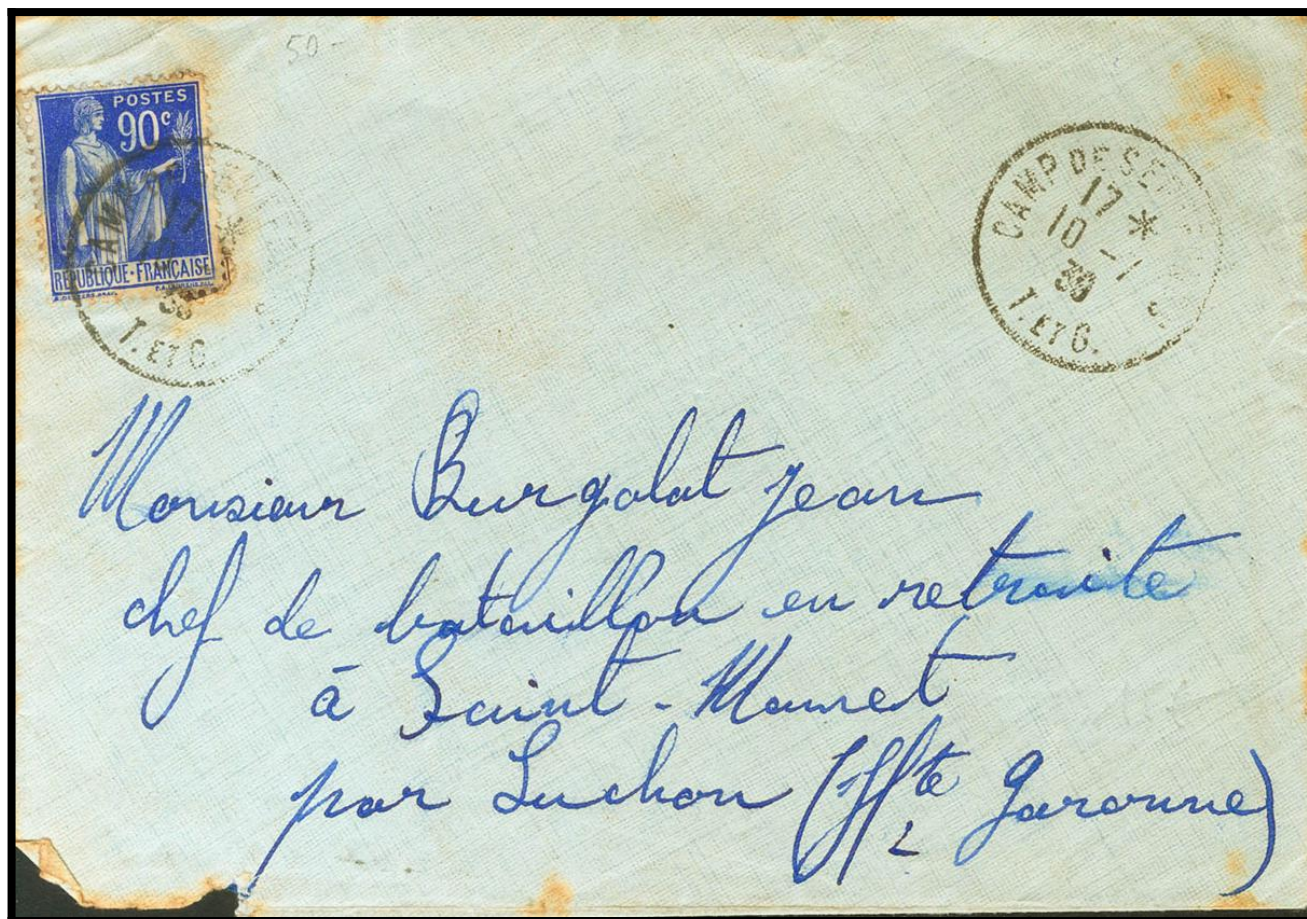 50-
POSTES
90c
RÉPUBLIQUE·FRANÇAISE
T. ET G.
CAMP DE
17 *
10 - 1
39
T. ET G.
Monsieur Burgalat Jean
chef de bataillon en retraite
à Saint-Mamet
par Luchon (Hte Garonne)